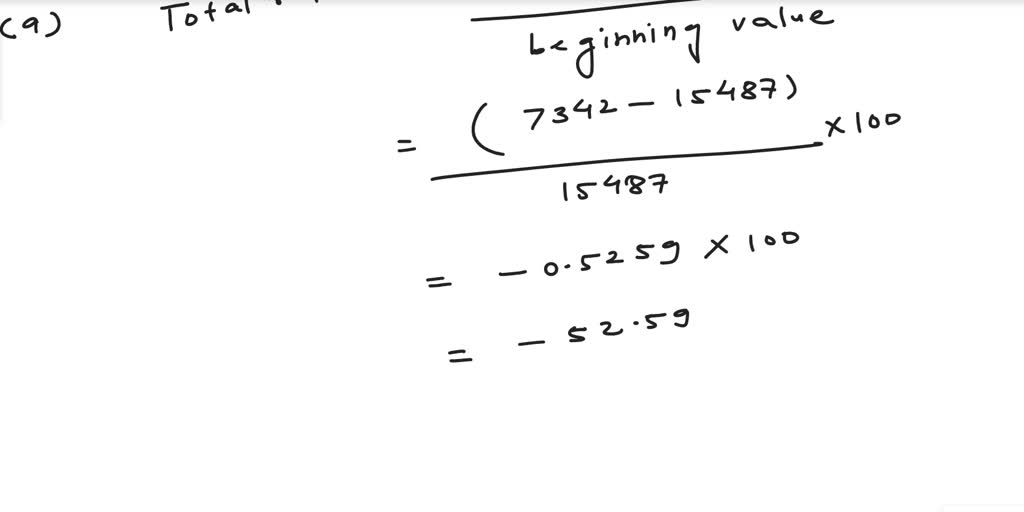 (a) Total
beginning value
= (7342 - 15487) × 100
15487
= - 0.5259 × 100
= - 52.59